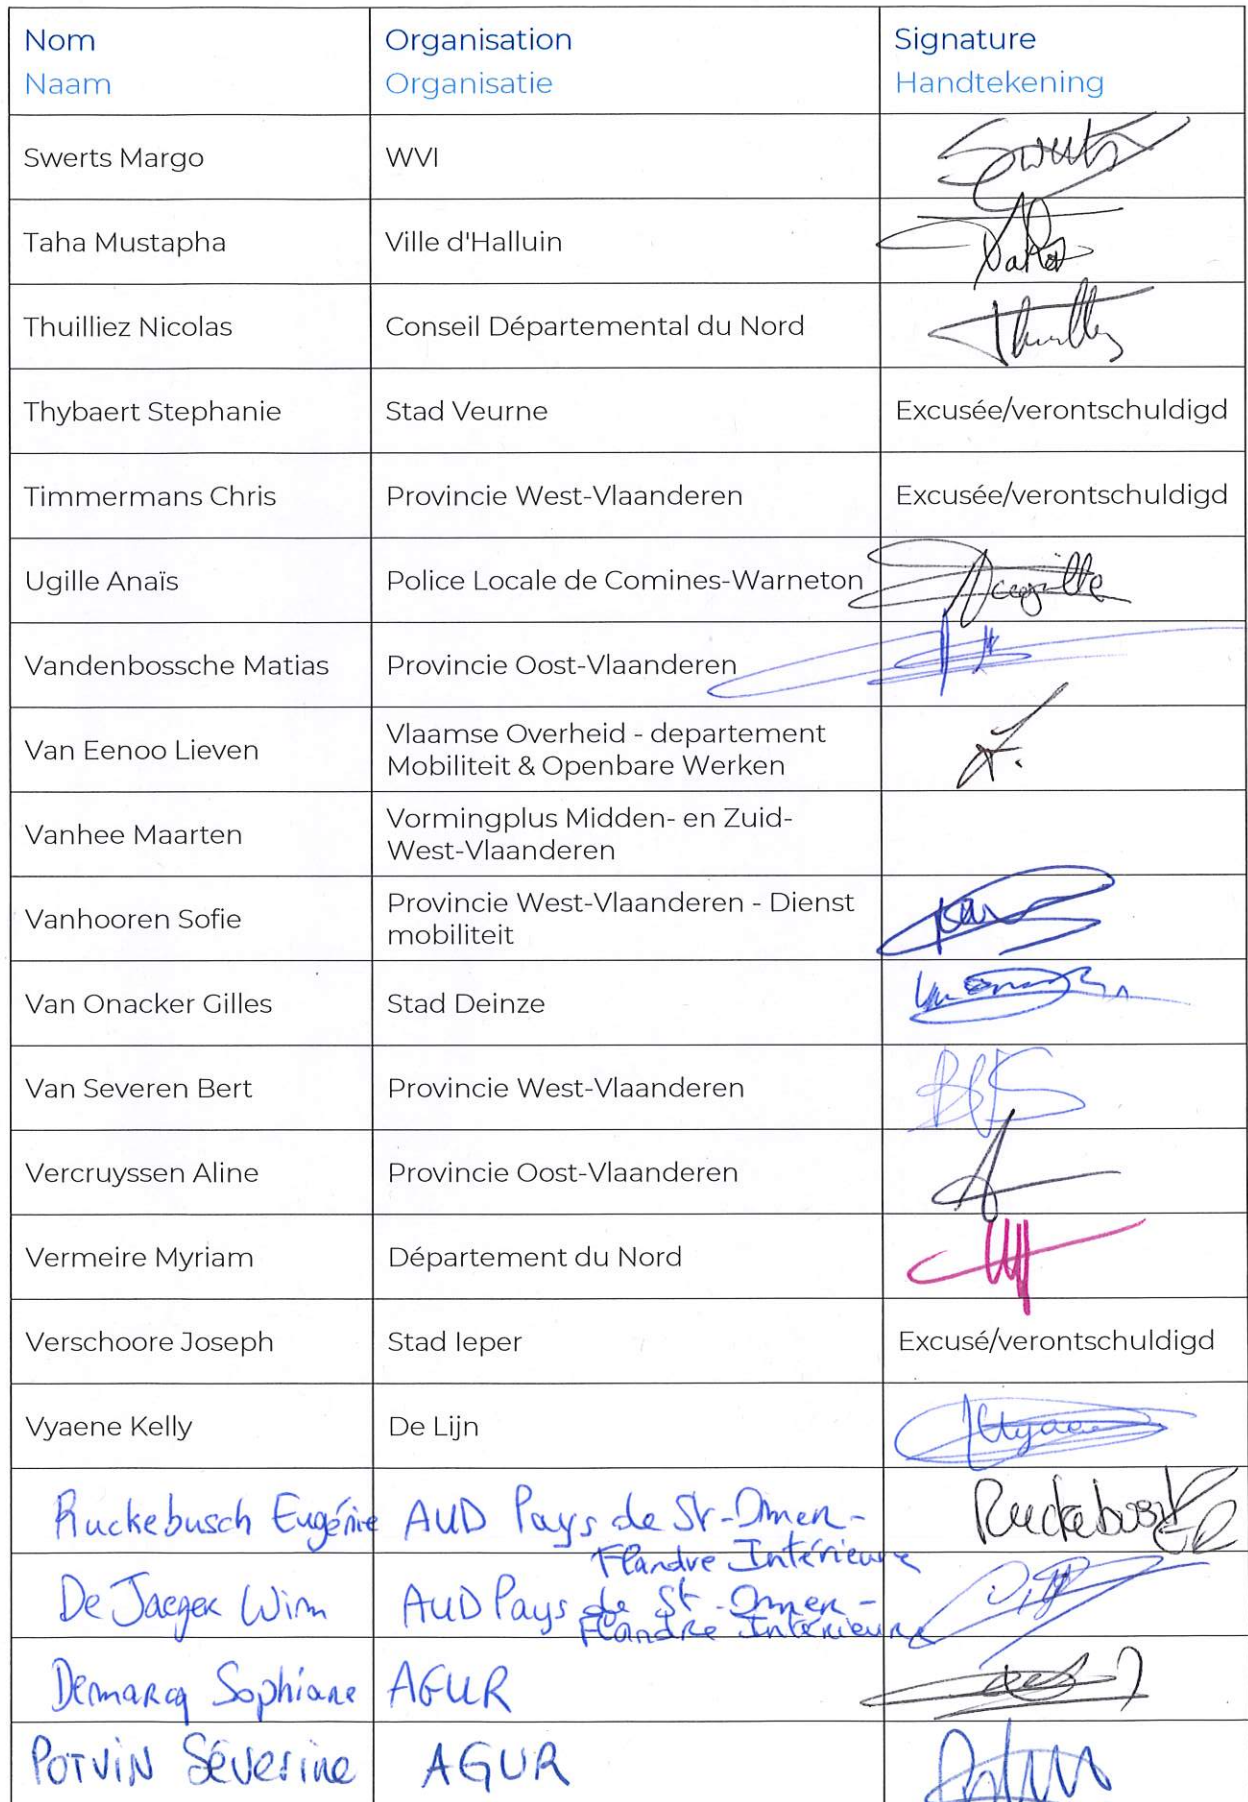 Nom Organisation Signature
Naam Organisatie Handtekening
Swerts Margo WVI Swerts
Taha Mustapha Ville d'Halluin Taha
Thuilliez Nicolas Conseil Départemental du Nord
Thybaert Stephanie Stad Veurne Excusée/verontschuldigd
Timmermans Chris Provincie West-Vlaanderen Excusée/verontschuldigd
Ugille Anaïs Police Locale de Comines-Warneton
Vandenbossche Matias Provincie Oost-Vlaanderen
Van Eenoo Lieven Vlaamse Overheid - departement
Mobiliteit & Openbare Werken
Vanhee Maarten Vormingplus Midden- en Zuid-
West-Vlaanderen
Vanhooren Sofie Provincie West-Vlaanderen - Dienst
mobiliteit
Van Onacker Gilles Stad Deinze
Van Severen Bert Provincie West-Vlaanderen
Vercruyssen Aline Provincie Oost-Vlaanderen
Vermeire Myriam Département du Nord
Verschoore Joseph Stad Ieper Excusé/verontschuldigd
Vyaene Kelly De Lijn
Ruckebusch Eugénie AUD Pays de St-Omer- Ruckebusch
Flandre Intérieure
De Jaeger Wim AUD Pays de St-Omer-
Flandre Intérieure
Demarcq Sophiane AGUR
POTVIN Séverine AGUR